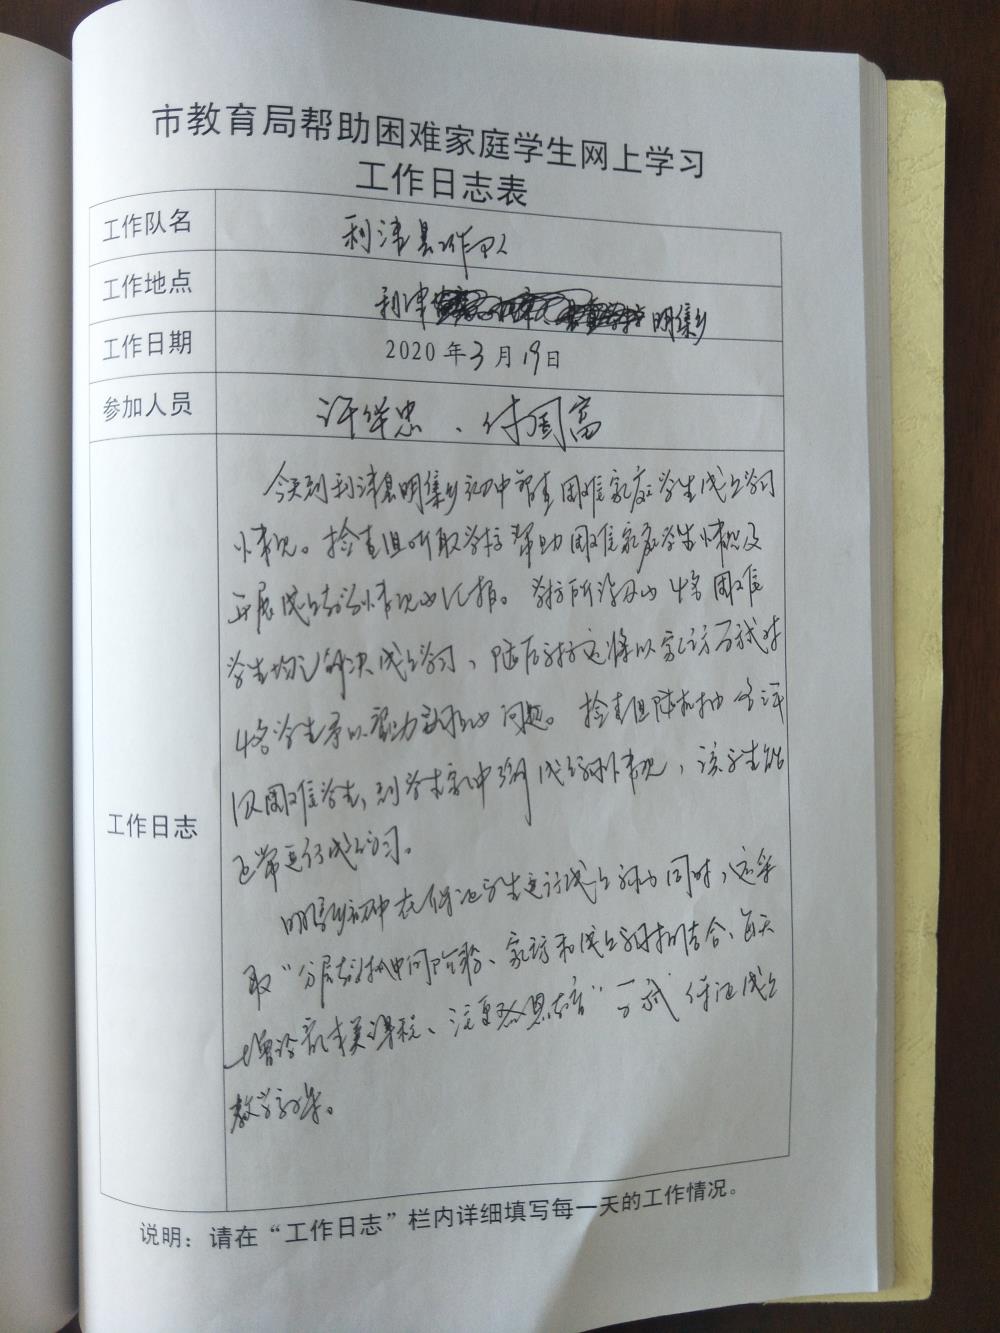 市教育局帮助困难家庭学生网上学习
工作日志表
工作队名 利津县工作队
工作地点 利津 明集乡
工作日期 2020年3月19日
参加人员 许学忠、付国富
工作日志
今天到利津县明集乡初中检查困难家庭学生线上学习
情况。检查组听取学校帮助困难家庭学生情况及
开展线上教学情况的汇报。学校所涉及的4名困难
学生均已解决线上学习,随后学校还将以家访方式对
4名学生予以帮助 的问题。检查组随机抽
困难学生,到学生家中 线上学习情况,该学生能
正常进行线上学习。
明集乡初中在保证学生进行线上学习的同时,还采
取“分层 、家访和线上 相结合、每天
增设 课程、注重 ”方式保证线上
教学效果。
说明:请在“工作日志”栏内详细填写每一天的工作情况。